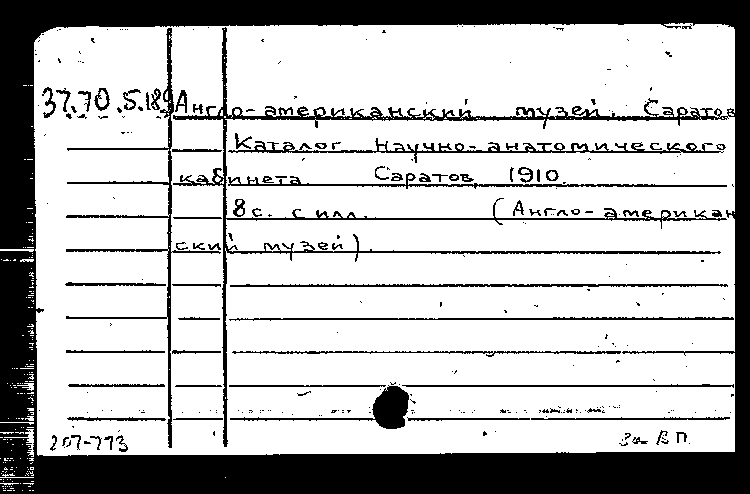 37.70.5.189 Англо-американский музей. Саратов
Каталог научно-анатомического
кабинета. Саратов, 1910.
8с. с илл. (Англо-американ
ский музей).
207-773 Зак. ВП